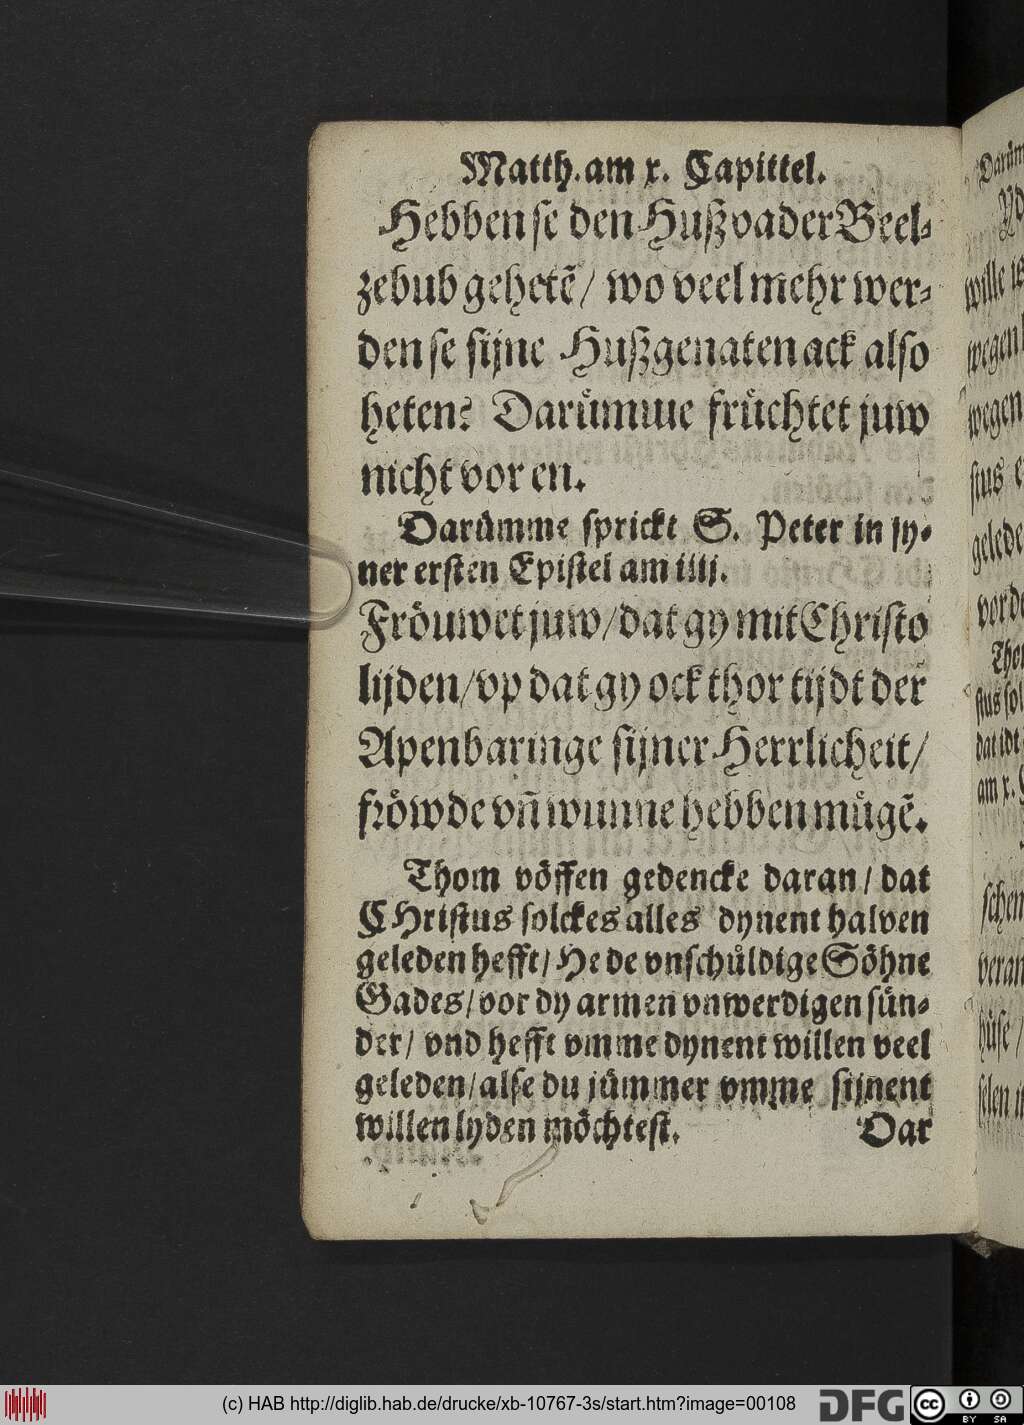 Matth. am x. Capittel.
Hebben se den Hußvader Beel-
zebub gehetẽ/ wo veel mehr wer-
den se sijne Hußgenaten ack also
heten? Darümme früchtet juw
nicht vor en.
Darümme sprickt S. Peter in sy-
ner ersten Epistel am iiij.
Fröuwet juw/ dat gy mit Christo
lijden/ vp dat gy ock thor tijdt der
Apenbaringe sijner Herrlicheit/
fröwde vñ wunne hebben mügẽ.
Thom vöfften gedencke daran/ dat
CHristus solckes alles dynent halven
geleden hefft/ He de vnschüldige Söhne
Gades/ vor dy armen vnwerdigen sün-
der/ vnd hefft vmme dynent willen veel
geleden/ alse du jümmer vmme sijnent
willen lyden möchtest. Dar
wille
wegen
wegen
stus
gelede
am x.
(c) HAB http://diglib.hab.de/drucke/xb-10767-3s/start.htm?image=00108
DFG
cc
BY SA